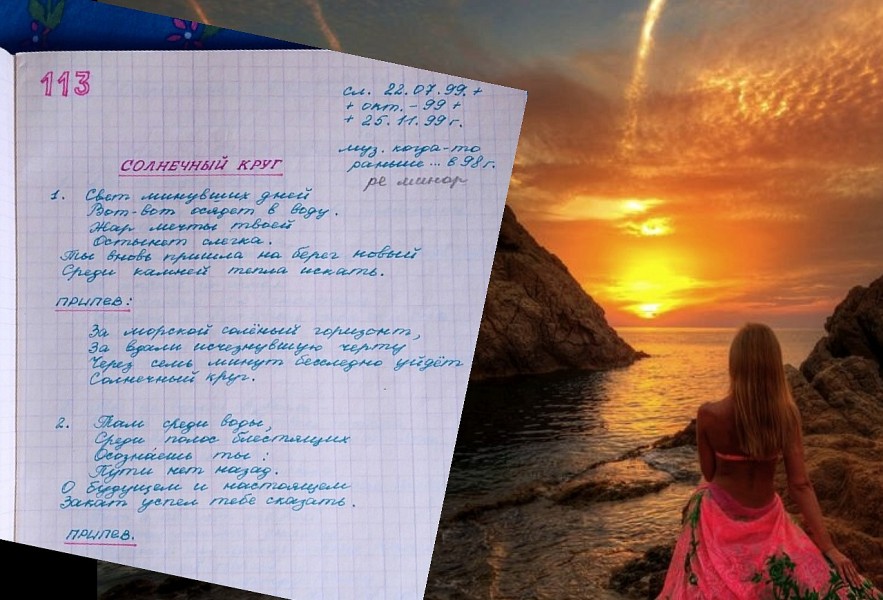 113
сл. 22.07.99. +
+ окт. - 99 +
+ 25.11.99 г.
муз. когда-то
раньше ... в 98 г.
ре минор
СОЛНЕЧНЫЙ КРУГ
1. Свет минувших дней
Вот-вот осядет в воду.
Жар мечты твоей
Остынет слегка.
Ты вновь пришла на берег новый
Среди камней тепла искать.
ПРИПЕВ:
За морской солёный горизонт,
За вдали исчезнувшую черту
Через семь минут бесследно уйдёт
Солнечный круг.
2. Там среди воды,
Среди полос блестящих
Осознаешь ты:
Пути нет назад.
О будущем и настоящем
Закат успел тебе сказать.
ПРИПЕВ.